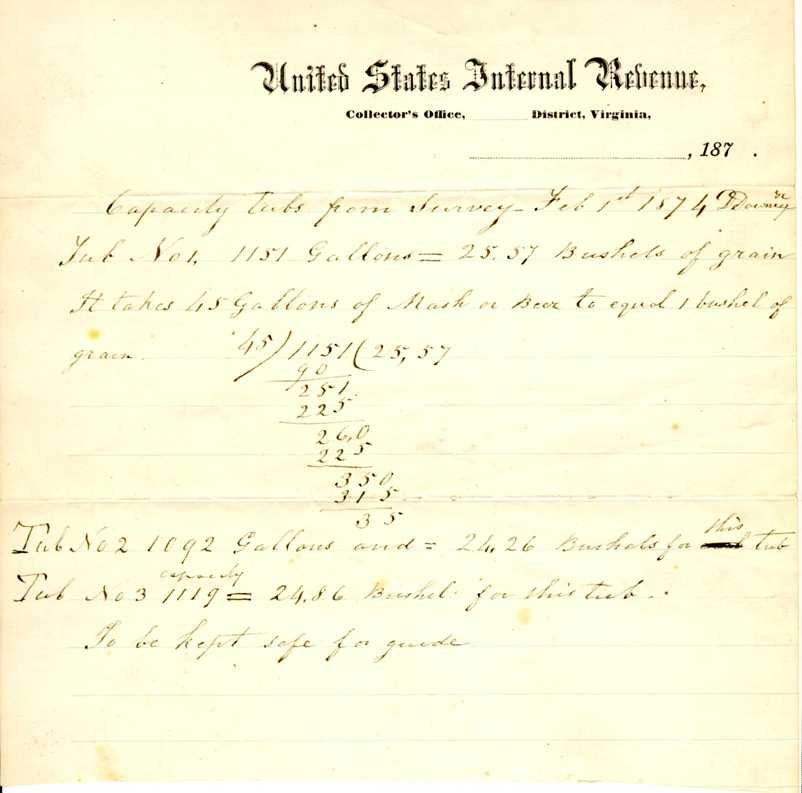 United States Internal Revenue,
Collector's Office, District, Virginia,
, 187 .
Capacity tubs from Survey - Feb 1st 1874 Downey
Tub No 1. 1151 Gallons = 25.57 Bushels of grain
It takes 45 Gallons of Mash or Beer to equal 1 bushel of
grain. 45) 1151 (25,57
90
251
225
26,0
225
350
315
35
Tub No 2 1092 Gallons and = 24,26 Bushels for this tub
Tub No 3 capacity 1119 = 24.86 Bushel for this tub.
To be kept safe for guide